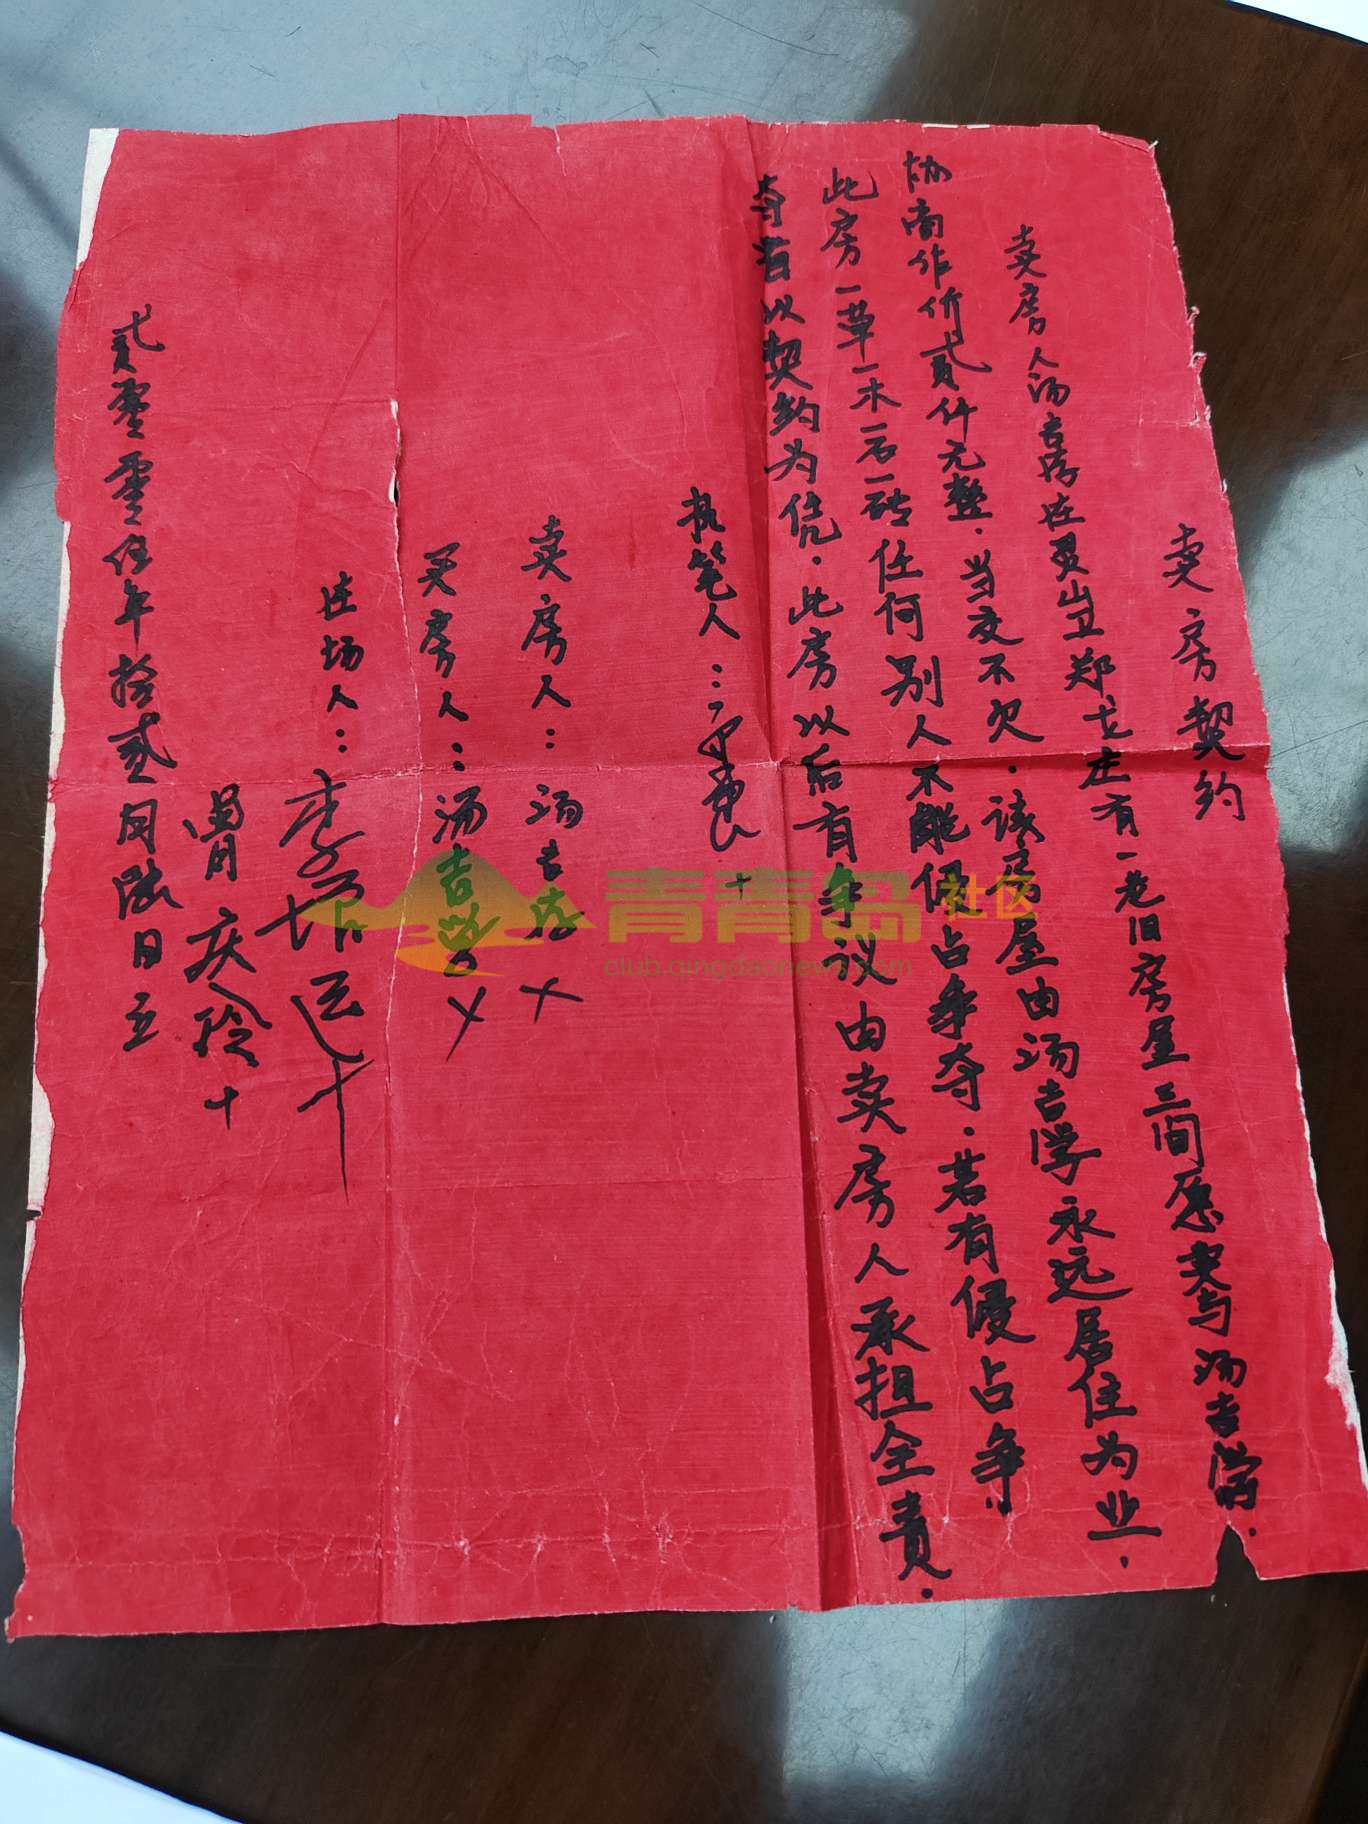 卖房契约
卖房人汤吉 在灵山卫郑戈庄有一老旧房屋三间愿卖与汤吉学.
协商作价贰仟元整.当交不欠.该房屋由汤吉学永远居住为业.
此房一草一木一石一砖任何别人不能侵占争夺.若有侵占争
夺者以契约为凭.此房以后有争议由卖房人承担全责.
执笔人:
卖房人:汤吉
买房人:汤吉学
在场人:李
庆玲
贰零零伍年拾贰月陆日立
青青岛社区
club.qingdaonews.com